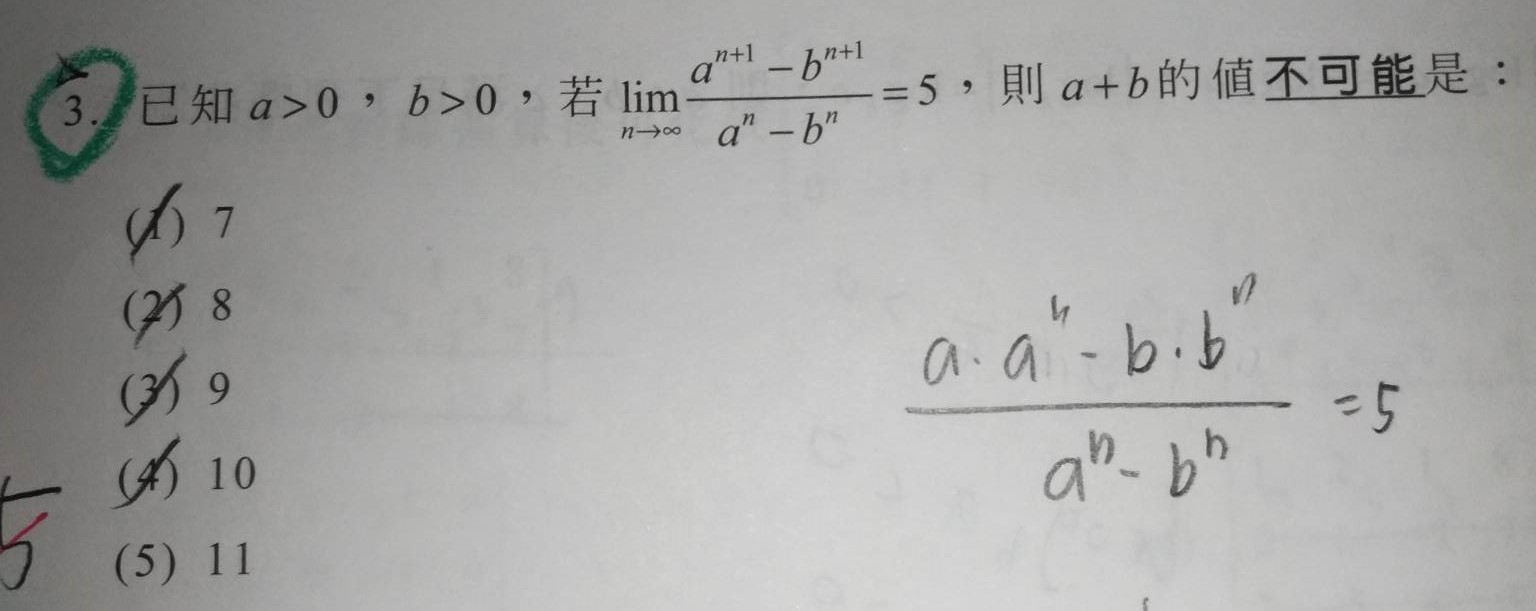 3. 已知 a>0，b>0，若 lim_{n→∞} \frac{a^{n+1} - b^{n+1}}{a^n - b^n} = 5，則 a+b 的值不可能是：
(1) 7
(2) 8
(3) 9
(4) 10
(5) 11
\frac{a·a^n - b·b^n}{a^n - b^n} = 5
5